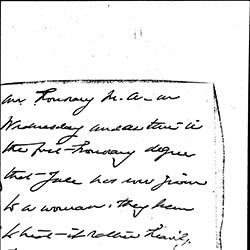 an Honorary M.A. on
Wednesday and as this is
the first Honorary degree
that Yale has ever given
to a woman, they seem
to think it rather